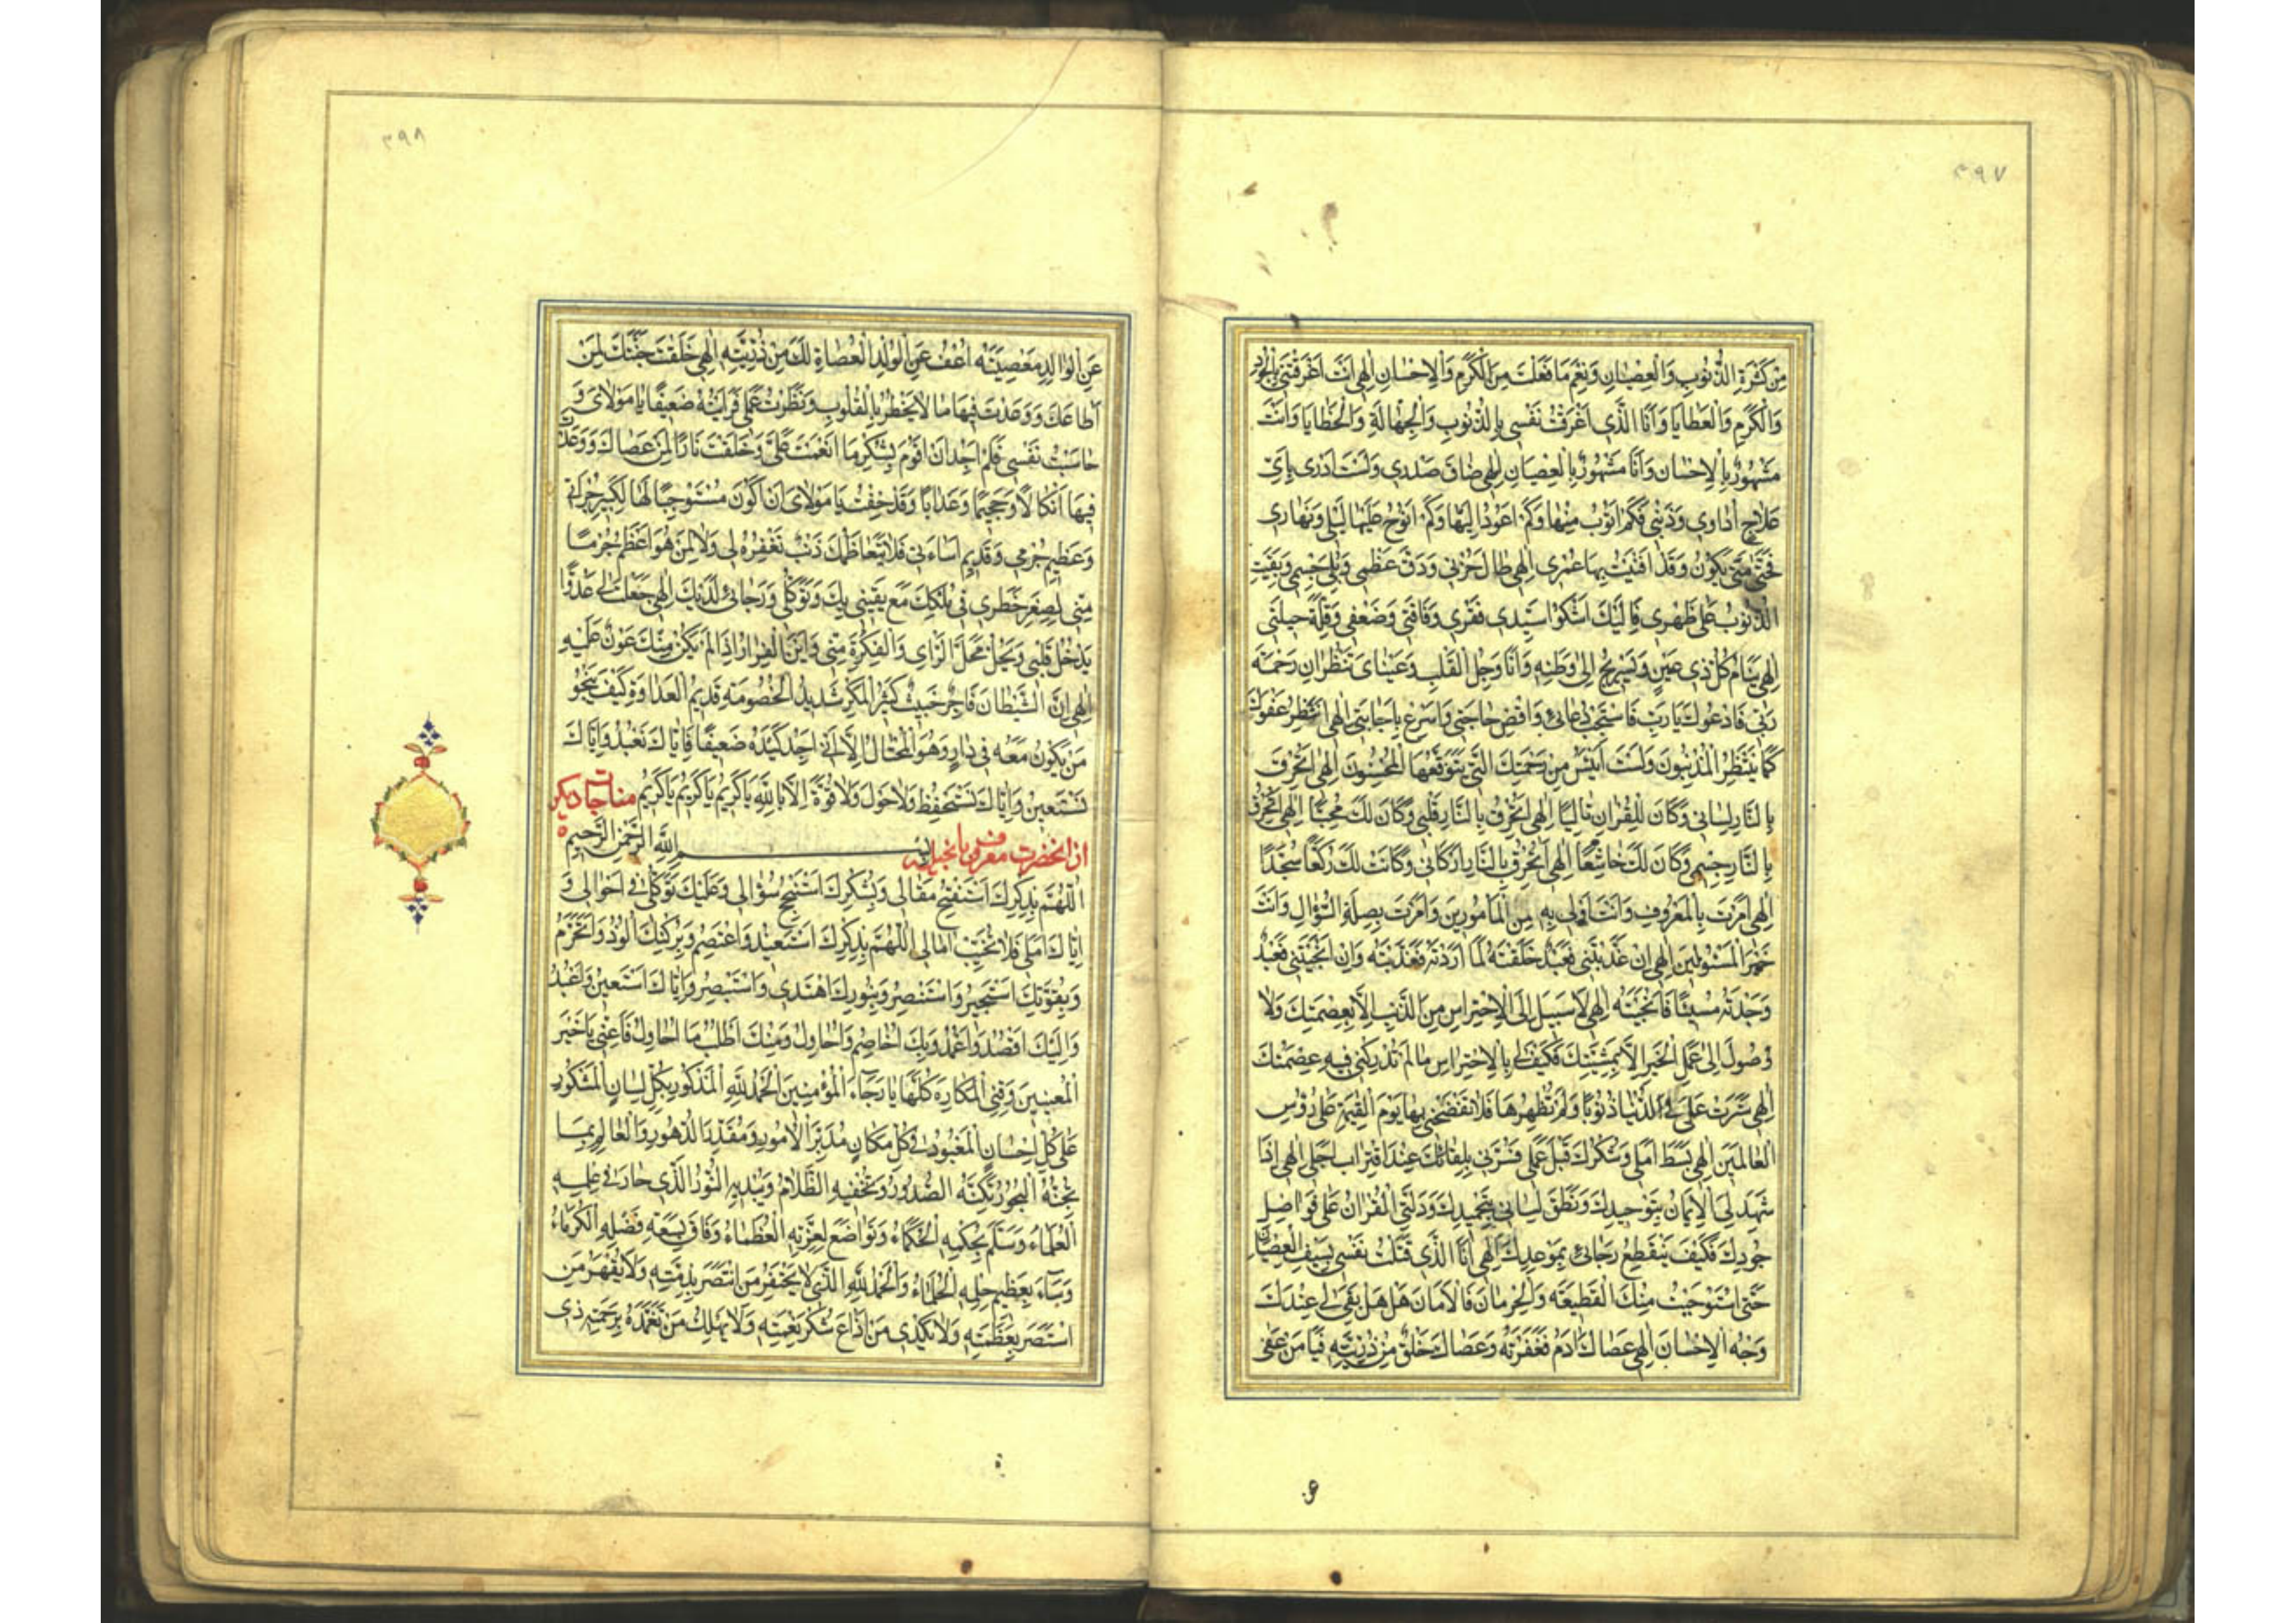 ۳۹۷
مِنْ كَثْرَةِ الذُّنُوبِ وَالْعِصْيَانِ وَنِعْمَ مَا فَعَلْتَ مِنَ الْكَرَمِ وَالْإِحْسَانِ إِلٰهِي أَنْتَ أَغْرَقْتَنِي بِالْجُودِ
وَالْكَرَمِ وَالْعَطَايَا وَأَنَا الَّذِي أَغْرَقْتُ نَفْسِي بِالذُّنُوبِ وَالْجَهَالَةِ وَالْخَطَايَا وَأَنْتَ
مَشْهُورٌ بِالْإِحْسَانِ وَأَنَا مَشْهُورٌ بِالْعِصْيَانِ إِلٰهِي ضَاقَ صَدْرِي وَلَسْتُ أَدْرِي بِأَيِّ
عِلَاجٍ أُدَاوِي وَذَنْبِي فَكَمْ أَتُوبُ مِنْهَا وَكَمْ أَعُودُ إِلَيْهَا وَكَمْ أَنُوحُ عَلَيْهَا لَيْلِي وَنَهَارِي
فَحَتَّى مَتَى يَكُونُ وَقَدْ أَفْنَيْتُ بِهَا عُمْرِي إِلٰهِي طَالَ حُزْنِي وَدَقَّ عَظْمِي وَبَلِيَ جِسْمِي وَبَقِيَتِ
الذُّنُوبُ عَلَى ظَهْرِي فَإِلَيْكَ أَشْكُو سَيِّدِي فَقْرِي وَفَاقَتِي وَضَعْفِي وَقِلَّةَ حِيلَتِي
إِلٰهِي يَنَامُ كُلُّ ذِي عَيْنٍ وَيَسْتَرِيحُ إِلَى وَطَنِهِ وَأَنَا وَجِلُ الْقَلْبِ وَعَيْنَايَ تَنْظُرَانِ رَحْمَةَ
رَبِّي فَأَدْعُوكَ يَا رَبِّ فَاسْتَجِبْ دُعَائِي وَاقْضِ حَاجَتِي وَأَسْرِعْ بِإِجَابَتِي إِلٰهِي أَنْتَظِرُ عَفْوَكَ
كَمَا يَنْتَظِرُ الْمُذْنِبُونَ وَلَسْتُ أَيْئَسُ مِنْ رَحْمَتِكَ الَّتِي يَتَوَقَّعُهَا الْمُحْسِنُونَ إِلٰهِي أَتُحْرِقُ
بِالنَّارِ لِسَانِي وَكَانَ لِلْقُرْآنِ تَالِيًا إِلٰهِي أَتُحْرِقُ بِالنَّارِ قَلْبِي وَكَانَ لَكَ مُحِبًّا إِلٰهِي أَتُحْرِقُ
بِالنَّارِ جِسْمِي وَكَانَ لَكَ خَاشِعًا إِلٰهِي أَتُحْرِقُ بِالنَّارِ أَرْكَانِي وَكَانَتْ لَكَ رُكَّعًا سُجَّدًا
إِلٰهِي أَمَرْتَ بِالْمَعْرُوفِ وَأَنْتَ أَوْلَى بِهِ مِنَ الْمَأْمُورِينَ وَأَمَرْتَ بِصِلَةِ السُّؤَالِ وَأَنْتَ
خَيْرُ الْمَسْئُولِينَ إِلٰهِي إِنْ عَذَّبْتَنِي فَعَبْدٌ خَلَقْتَهُ لِمَا أَرَدْتَهُ فَعَذَّبْتَهُ وَإِنْ أَنْجَيْتَنِي فَعَبْدٌ
وَجَدْتَهُ مُسِيئًا فَأَنْجَيْتَهُ إِلٰهِي لَا سَبِيلَ إِلَى الْإِحْتِرَاسِ مِنَ الذَّنْبِ إِلَّا بِعِصْمَتِكَ وَلَا
وُصُولَ إِلَى عَمَلِ الْخَيْرِ إِلَّا بِمَشِيَّتِكَ فَكَيْفَ لِي بِالْإِحْتِرَاسِ مَا لَمْ تُدْرِكْنِي فِيهِ عِصْمَتُكَ
إِلٰهِي سَتَرْتَ عَلَيَّ فِي الدُّنْيَا ذُنُوبًا وَلَمْ تُظْهِرْهَا فَلَا تَفْضَحْنِي بِهَا يَوْمَ الْقِيٰمَةِ عَلَى رُؤُسِ
الْعَالَمِينَ إِلٰهِي بَسَطَ أَمَلِي وَشُكْرُكَ قَبْلَ عَمَلِي فَسُرَّنِي بِلِقَائِكَ عِنْدَ اقْتِرَابِ أَجَلِي إِلٰهِي إِذَا
شَهِدَ لِيَ الْإِيمَانُ بِتَوْحِيدِكَ وَنَطَقَ لِسَانِي بِتَحْمِيدِكَ وَدَلَّنِي الْقُرْآنُ عَلَى فَوَاضِلِ
جُودِكَ فَكَيْفَ يَنْقَطِعُ رَجَائِي بِمَوْعِدِكَ إِلٰهِي أَنَا الَّذِي قَتَلْتُ نَفْسِي بِسَيْفِ الْعِصْيَانِ
حَتَّى اسْتَوْجَبْتُ مِنْكَ الْقَطِيعَةَ وَالْحِرْمَانَ فَالْأَمَانَ هَلْ هَلْ بَقِيَ لِي عِنْدَكَ
وَجْهُ الْإِحْسَانِ إِلٰهِي عَصَاكَ آدَمُ فَغَفَرْتَهُ وَعَصَاكَ خَلْقٌ مِنْ ذُرِّيَّتِهِ فَيَا مَنْ عَفَى
۳۹۸
عَنِ الْوَالِدِ مَعْصِيَتَهُ اُعْفُ عَنِ الْوَلَدِ الْعُصَاةِ لَكَ مِنْ ذُرِّيَّتِهِ إِلٰهِي خَلَقْتَ جَنَّتَكَ لِمَنْ
أَطَاعَكَ وَوَعَدْتَ فِيهَا مَا لَا يَخْطُرُ بِالْقُلُوبِ وَنَظَرْتُ عَمَلِي فَرَأَيْتُهُ ضَعِيفًا يَا مَوْلَايَ وَ
حَاسَبْتُ نَفْسِي فَلَمْ أَجِدْ أَنْ أَقُومَ بِشُكْرِ مَا أَنْعَمْتَ عَلَيَّ وَخَلَقْتَ نَارًا لِمَنْ عَصَاكَ وَوَعَدْتَ
فِيهَا أَنْكَالًا وَجَحِيمًا وَعَذَابًا وَقَدْ خِفْتُ يَا مَوْلَايَ أَنْ أَكُونَ مُسْتَوْجِبًا لَهَا لِكَبِيرِ جُرْأَتِي
وَعَظِيمِ جُرْمِي وَقَدِيمِ إِسَاءَتِي فَلَا يَتَعَاظَمُكَ ذَنْبٌ تَغْفِرُهُ لِي وَلَا لِمَنْ هُوَ أَعْظَمُ جُرْمًا
مِنِّي لِصِغَرِ خَطَرِي فِي مُلْكِكَ مَعَ يَقِينِي بِكَ وَتَوَكُّلِي وَرَجَائِي لَدَيْكَ إِلٰهِي جَعَلْتَ لِي عَدُوًّا
يَدْخُلُ قَلْبِي وَيَحُلُّ مَحَلَّ الرَّأْيِ وَالْفِكْرَةِ مِنِّي وَأَيْنَ الْفِرَارُ إِذَا لَمْ يَكُنْ مِنْكَ عَوْنٌ عَلَيْهِ
إِلٰهِي إِنَّ الشَّيْطَانَ فَاجِرٌ خَبِيثٌ كَثِيرُ الْمَكْرِ شَدِيدُ الْخُصُومَةِ قَدِيمُ الْعَدَاوَةِ كَيْفَ يَنْجُو
مَنْ يَكُونُ مَعَهُ فِي دَارٍ وَهُوَ الْمُحْتَالُ إِلَّا أَنِّي أَجِدُ كَيْدَهُ ضَعِيفًا فَإِيَّاكَ نَعْبُدُ وَإِيَّاكَ
نَسْتَعِينُ وَإِيَّاكَ نَسْتَحْفِظُ وَلَا حَوْلَ وَلَا قُوَّةَ إِلَّا بِاللّٰهِ يَا كَرِيمُ يَا كَرِيمُ يَا كَرِيمُ مناجات ديكر
از آنحضرت معروف بانجيليه بسم اللّٰهِ الرَّحْمٰنِ الرَّحِيمِ
اَللّٰهُمَّ بِذِكْرِكَ أَسْتَفْتِحُ مَقَالِي وَبِشُكْرِكَ أَسْتَنْجِحُ سُؤَالِي وَعَلَيْكَ تَوَكُّلِي فِي أَحْوَالِي وَ
إِيَّاكَ أَمَلِي فَلَا تُخَيِّبْ آمَالِي اَللّٰهُمَّ بِذِكْرِكَ أَسْتَعِيذُ وَأَعْتَصِمُ وَبِرُكْنِكَ أَلُوذُ وَأَتَحَزَّمُ
وَبِقُوَّتِكَ أَسْتَجِيرُ وَأَسْتَنْصِرُ وَبِنُورِكَ أَهْتَدِي وَأَسْتَبْصِرُ وَإِيَّاكَ أَسْتَعِينُ وَأَعْبُدُ
وَإِلَيْكَ أَقْصُدُ وَأَعْمَدُ وَبِكَ أُخَاصِمُ وَأُحَاوِلُ وَمِنْكَ أَطْلُبُ مَا أُحَاوِلُ فَأَعِنِّي يَا خَيْرَ
الْمُعِينِينَ وَقِنِي الْمَكَارِهَ كُلَّهَا يَا رَجَاءَ الْمُؤْمِنِينَ الْحَمْدُ لِلّٰهِ الْمَذْكُورِ بِكُلِّ لِسَانٍ الْمَشْكُورِ
عَلَى كُلِّ إِحْسَانٍ الْمَعْبُودِ فِي كُلِّ مَكَانٍ مُدَبِّرِ الْأُمُورِ وَمُقَدِّرِ الدُّهُورِ وَالْعَالِمِ بِمَا
تُجِنُّهُ الْبُحُورُ وَتُكِنُّهُ الصُّدُورُ وَيُخْفِيهِ الظَّلَامُ وَيُبْدِيهِ النُّورُ الَّذِي حَارَ فِي عِلْمِهِ
الْعُلَمَاءُ وَسَلَّمَ بِحُكْمِهِ الْحُكَمَاءُ وَتَوَاضَعَ لِعِزَّتِهِ الْعُظَمَاءُ وَفَاقَ بِسَعَةِ فَضْلِهِ الْكُرَمَاءُ
وَسَاءَ بِعَظِيمِ حِلْمِهِ الْحُلَمَاءُ وَالْحَمْدُ لِلّٰهِ الَّذِي لَا يُخْفَرُ مَنِ انْتَصَرَ بِذِمَّتِهِ وَلَا يُقْهَرُ مَنِ
اسْتَنْصَرَ بِعَظَمَتِهِ وَلَا يُكْدِي مَنْ أَذَاعَ شُكْرَ نِعْمَتِهِ وَلَا يَهْلِكُ مَنْ تَغَمَّدَهُ بِرَحْمَتِهِ ذِي